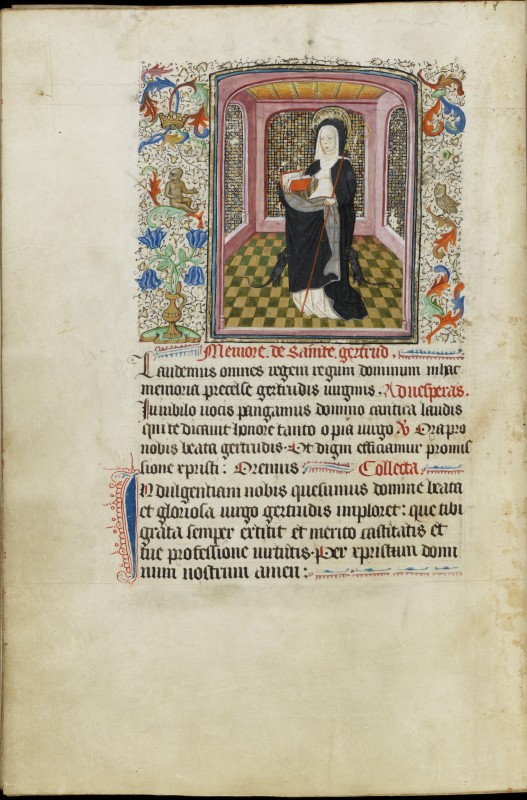 Memore. de Sainte. gertrud.
Laudemus omnes regem regum dominum in hac
memoria precelse gertrudis uirginis. Ad uesperas.
In iubilo uocis pangamus domino cantica laudis
qui te ditauit honore tanto o pia uirgo ℟ Ora pro
nobis beata gertrudis. Ut digni efficiamur promis
sione xpristi: Oremus: Collecta
Indulgentiam nobis quesumus domine beata
et gloriosa uirgo gertrudis imploret: que tibi
grata semper extitit et merito castitatis et
tue professione uirtutis. Per xpristum domi
num nostrum amen: